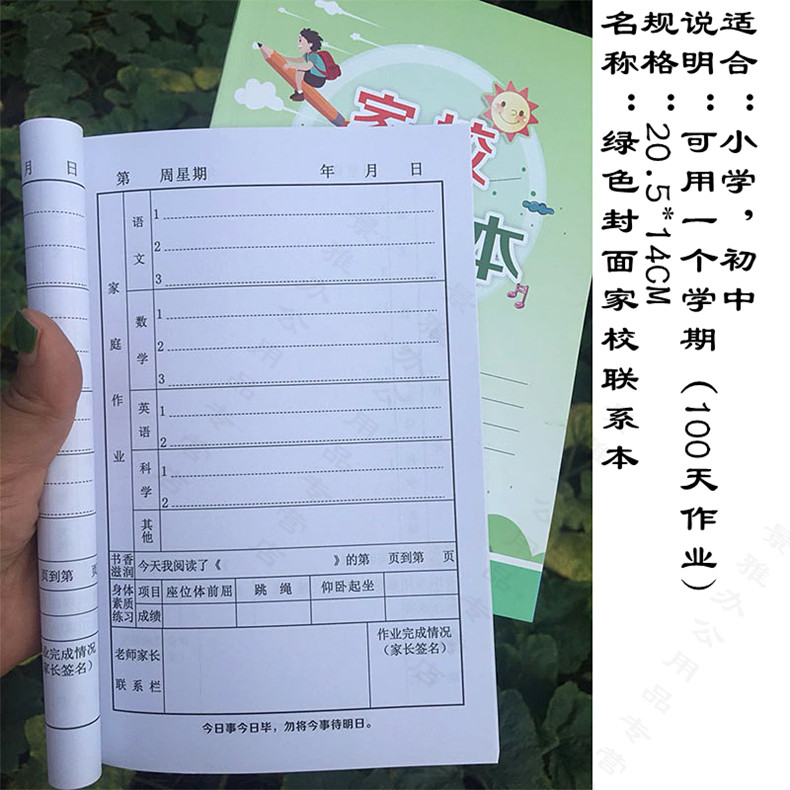 家校
本
月 日
页到第 页
业完成情况
家长签名）
第 周星期 年 月 日
家庭作业
语文
1
2
3
数学
1
2
3
英语
1
2
科学
1
2
其他
书香滋润 今天我阅读了《 》的第 页到第 页
身体素质练习
项目 座位体前屈 跳 绳 仰卧起坐
成绩
老师家长联系栏
作业完成情况
（家长签名）
今日事今日毕，勿将今事待明日。
名称：绿色封面家校联系本
规格：20.5*14CM
说明：可用一个学期（100天作业）
适合：小学，初中
景雅办公用品专营店